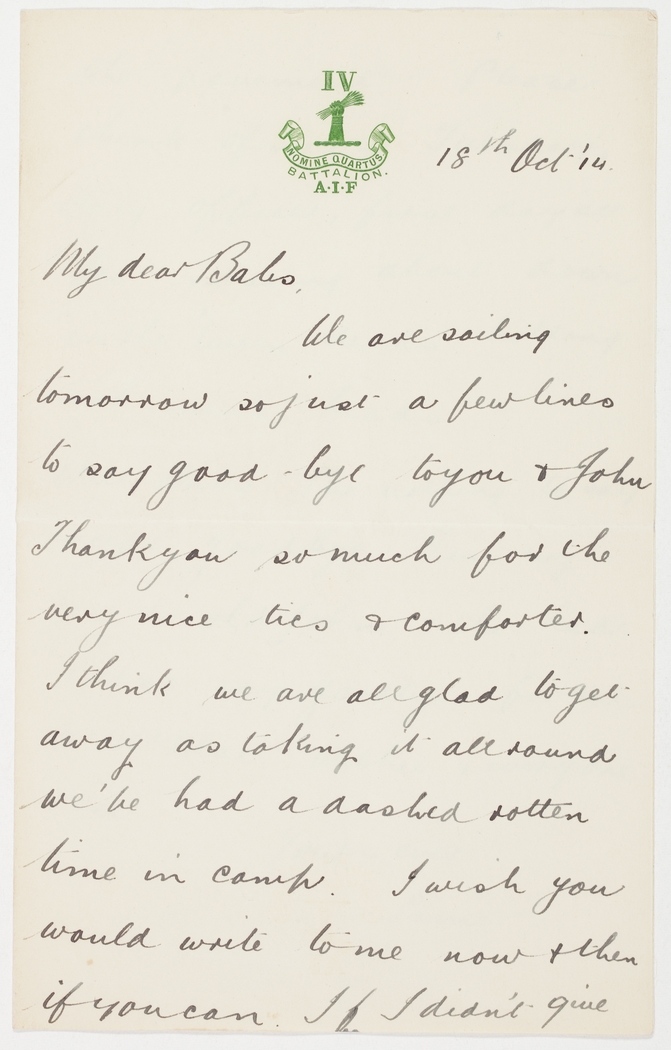 IV
NOMINE QUARTUS
BATTALION.
A.I.F
18th Oct '14.
My dear Babs,
We are sailing
tomorrow so just a few lines
to say good-bye to you & John
Thank you so much for the
very nice ties & comforter.
I think we are all glad to get
away as taking it all round
we've had a dashed rotten
time in camp. I wish you
would write to me now & then
if you can. If I didn't give